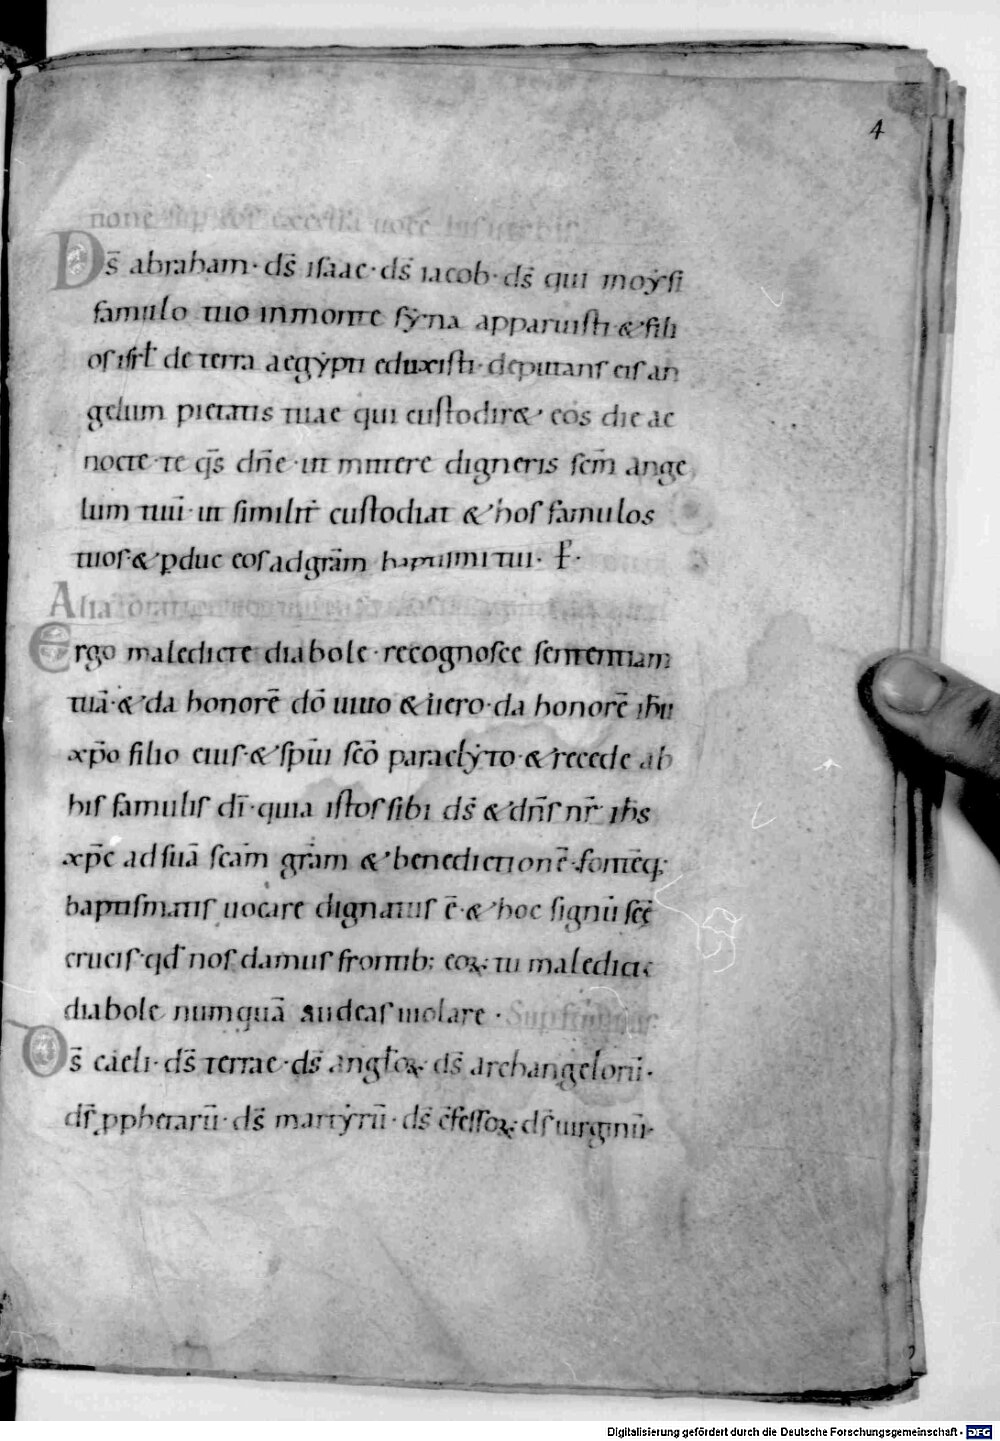 4
none sup eos excelsa uoce his uerbis
Ds̄ abraham · ds̄ isaac · ds̄ iacob · ds̄ qui moẏsi
famulo tuo in monte sẏna apparuisti & fili
os isrƚ de terra aegẏpti eduxisti · deputans eis an
gelum pietatis tuae qui custodir& eos die ac
nocte · te qs̄ dn̄e · ut mittere digneris scm̄ ange
lum tuū · ut similit̄ custodiat & hos famulos
tuos · & ꝑduc eos ad grām baptismi tui · ꝑ ·
Alia
Ergo maledicte diabole · recognosce sententiam
tuā · & da honorē dō uiuo & uero · da honorē ihū
xp̄o filio eius · & sp̄ui scō paraclẏto · & recede ab
his famulis dī · quia istos sibi ds̄ & dn̄s nr̄ ihs̄
xp̄c ad suā scam̄ grām & benedictionē · fontēq;
baptismatis uocare dignatus ē · & hoc signū scę̄
crucis · qđ nos damus frontib; eoꝝ · tu maledicte
diabole numquā audeas uiolare · Sup feminas
Ds̄ caeli · ds̄ terrae · ds̄ angƚoꝝ · ds̄ archangelorū ·
ds̄ ꝓphetarū · ds̄ martẏrū · ds̄ c̄fessoꝝ · ds̄ uirginū ·
Digitalisierung gefördert durch die Deutsche Forschungsgemeinschaft - DFG